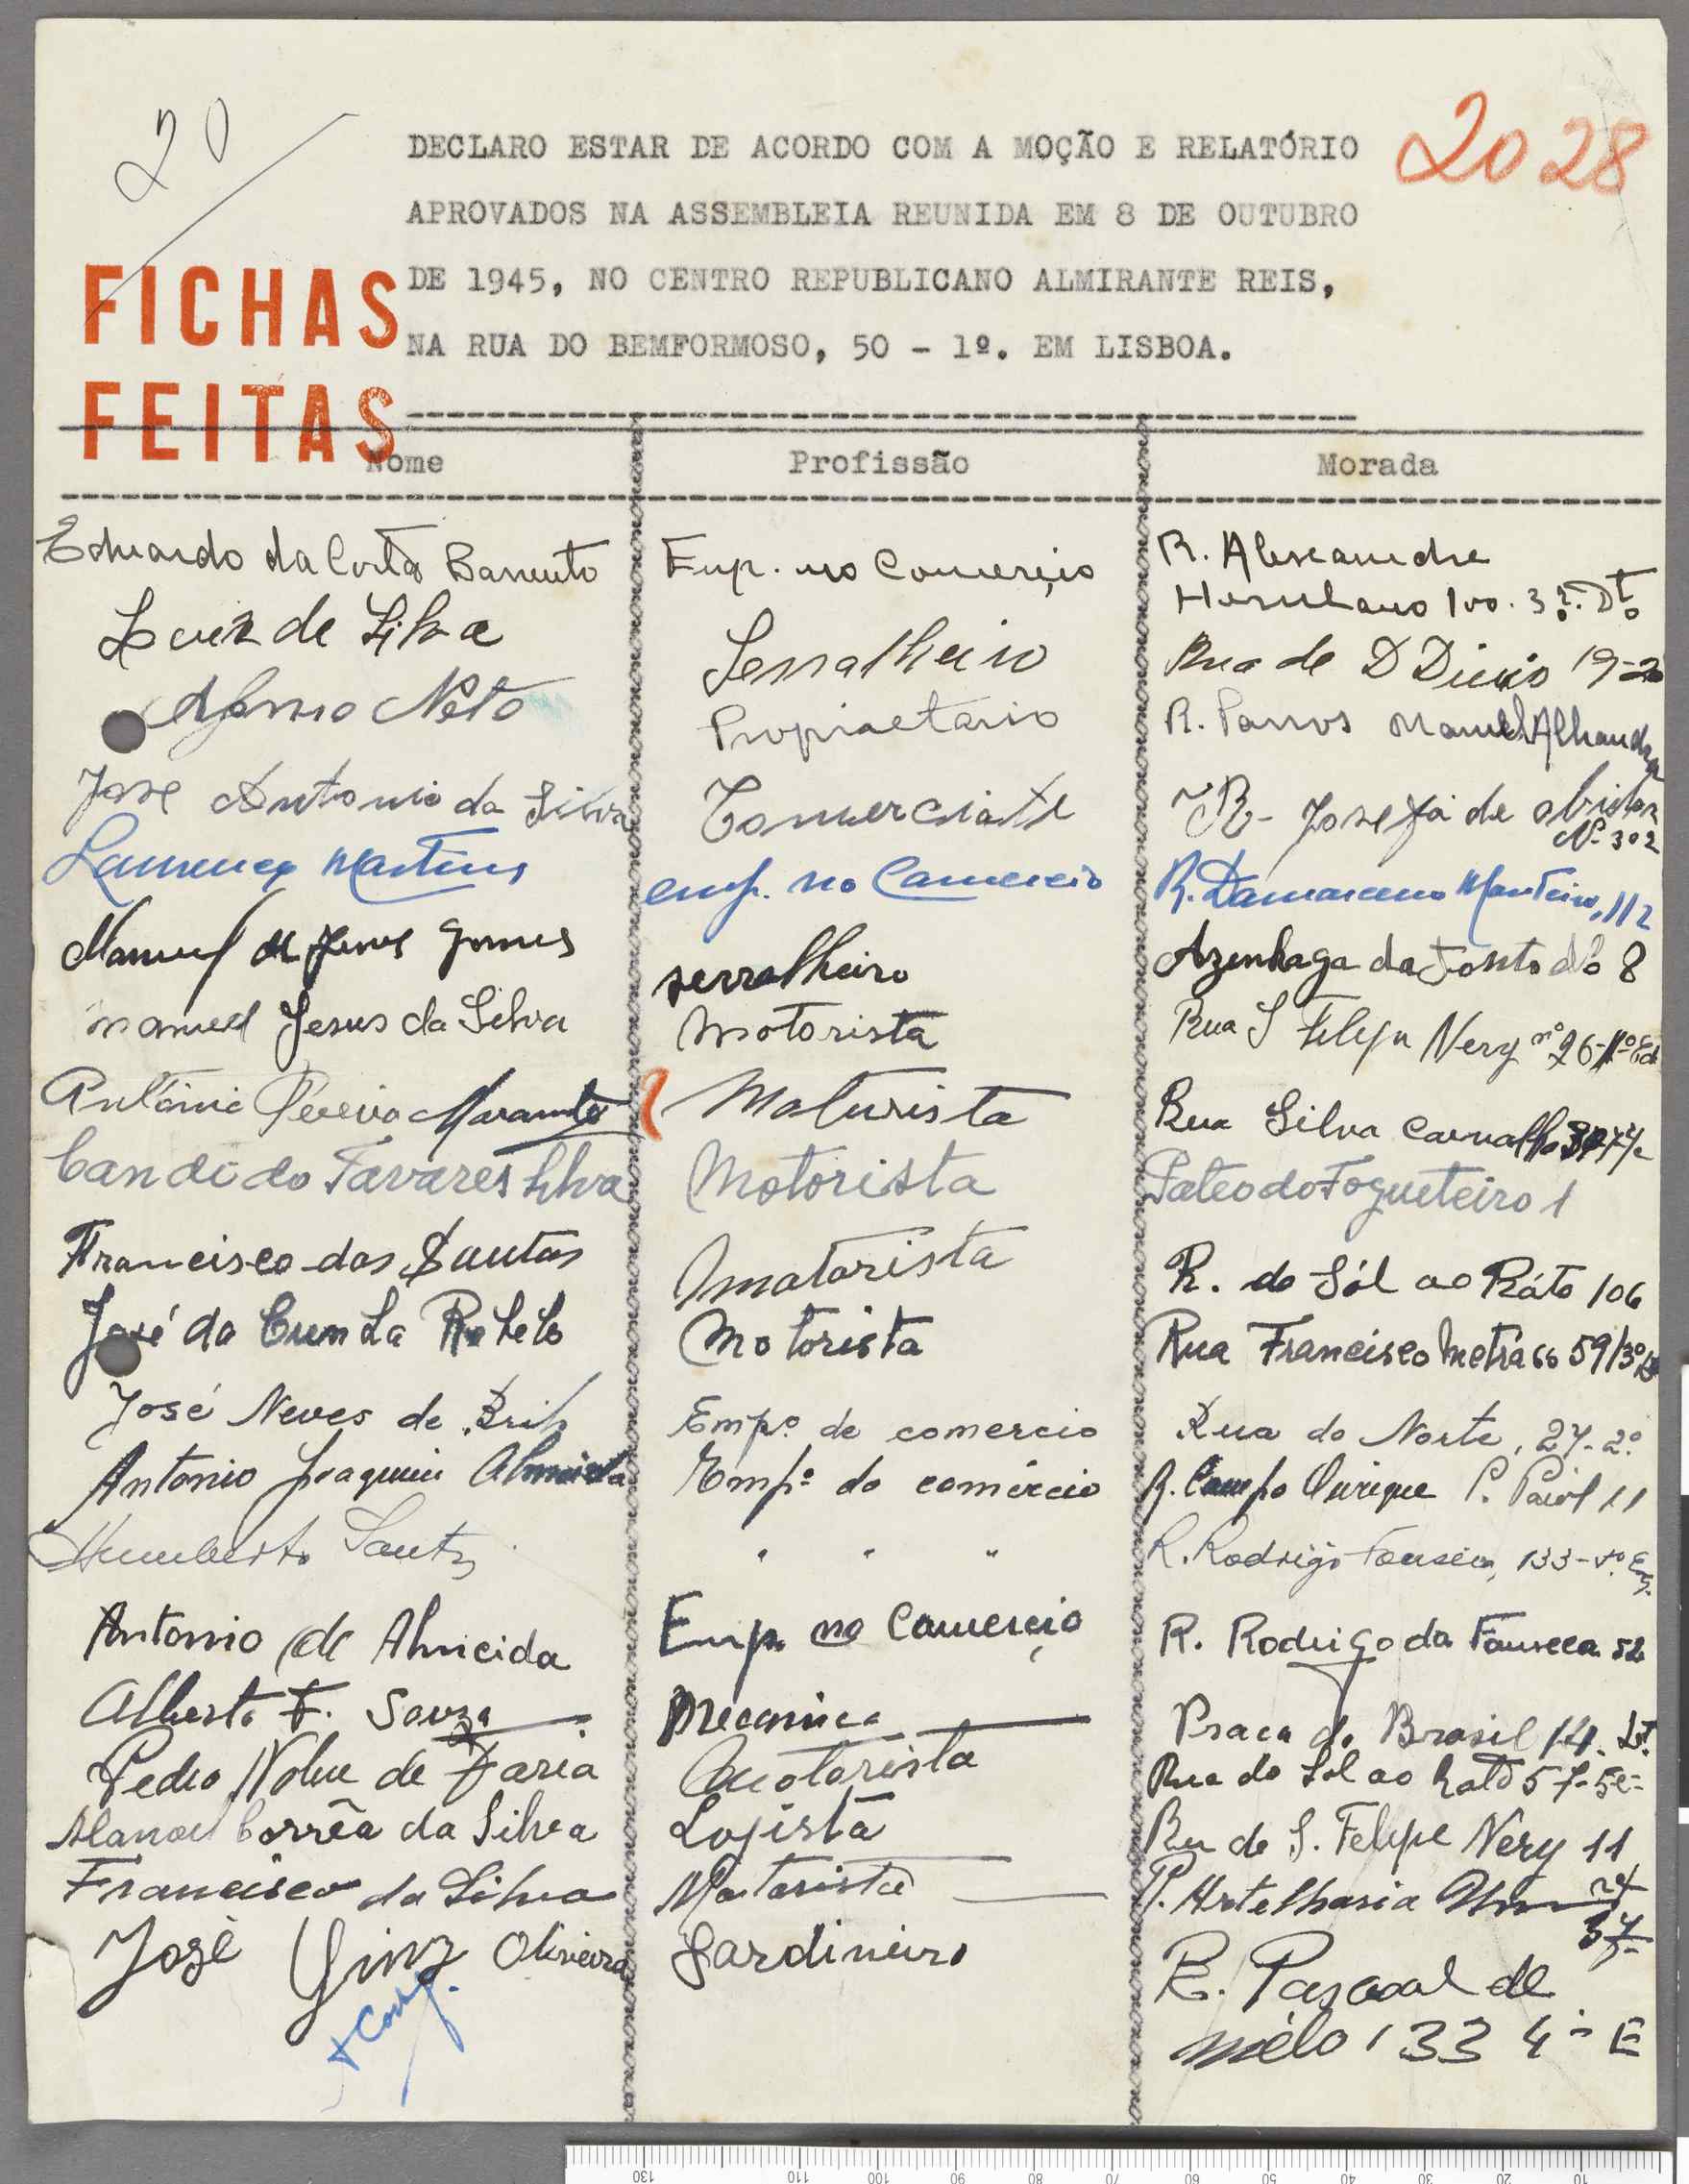 20
2028
DECLARO ESTAR DE ACORDO COM A MOÇÃO E RELATÓRIO
APROVADOS NA ASSEMBLEIA REUNIDA EM 8 DE OUTUBRO
DE 1945, NO CENTRO REPUBLICANO ALMIRANTE REIS,
NA RUA DO BEMFORMOSO, 50 - 1º. EM LISBOA.
FICHAS
FEITAS
Nome Profissão Morada
Eduardo da Costa Emp. no Comerçio R. Alexandre
Herculano 100. 3º. Dto
Luiz de Silva Serralheiro Rua de D Dinis 19-2º
Afonso Neto Propriaetario R. Manuel Alhandra
José Antonio da Silva Comerciante R- Josefa de obidos
Nº 302
Martins emp. no Comercio R. Damasceno Monteiro, 112
Manuel de Jesus Gomes serralheiro Azenhaga da Fonte Nº 8
manuel Jesus da Silva Motorista Rua S Felepe Nery nº 26-
António Pereira Maturista Rua Silva Carvalho
Candido Tavares Silva Motorista Pateo do Fogueteiro 1
Francisco dos Santos Motorista R. do Sól ao Ráto 106
José da Cunha Rebelo Motorista Rua Francisco Metráss 59/3º
José Neves de Brito Empº de comercio Rua do Norte, 27-2º
Antonio Joaquim Almeida Empº do comércio R. Campo Ourique P. Paiol 11
Humberto Santos " " " R. Rodrigo Fonseca, 133-
Antonio de Almeida Emp. no Comerçio R. Rodrigo da Fonseca 52
Alberto F. Souza Mecanico Praca do Brasil 14.
Pedro de Faria Motorista Rua do Sol ao Rato 57-
Manoel Corrêa da Silva Lojista Ru de S. Felepe Nery 11
Francisco da Silva Motorista P. Artelharia
37
José Oliveira Jardineiro R. Pascoal de
mélo 133 4º E